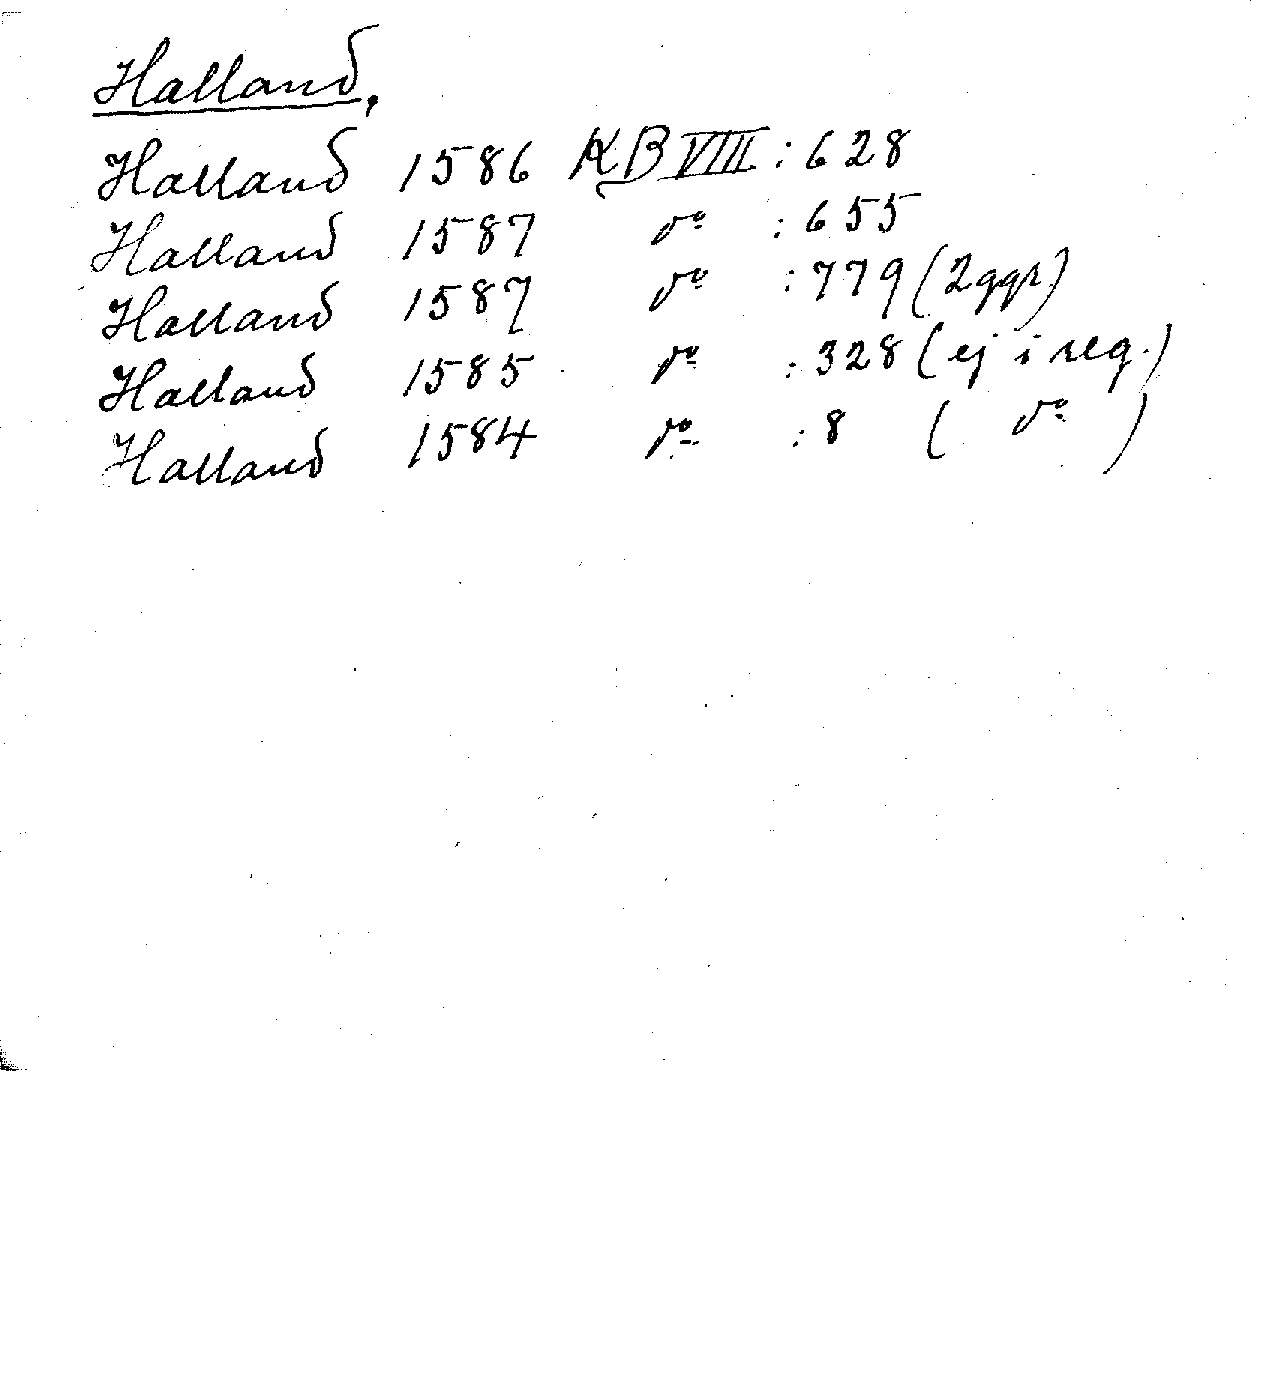 Halland,
Halland 1586 KB VIII : 628
Halland 1587 dº : 655
Halland 1587 dº : 779 (2 ggr)
Halland 1585 dº : 328 (ej i reg.)
Halland 1584 dº : 8 ( dº )